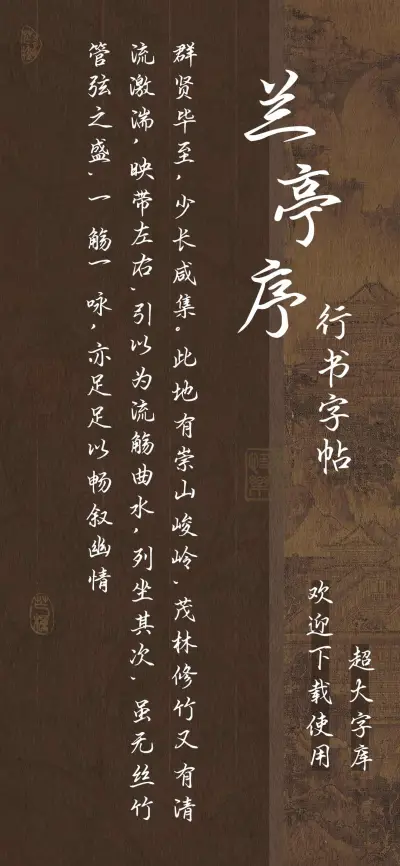 兰亭序
行书字帖
超大字库
欢迎下载使用
群贤毕至，少长咸集。此地有崇山峻岭、茂林修竹又有清
流激湍，映带左右、引以为流觞曲水，列坐其次、虽无丝竹
管弦之盛、一觞一咏，亦足足以畅叙幽情